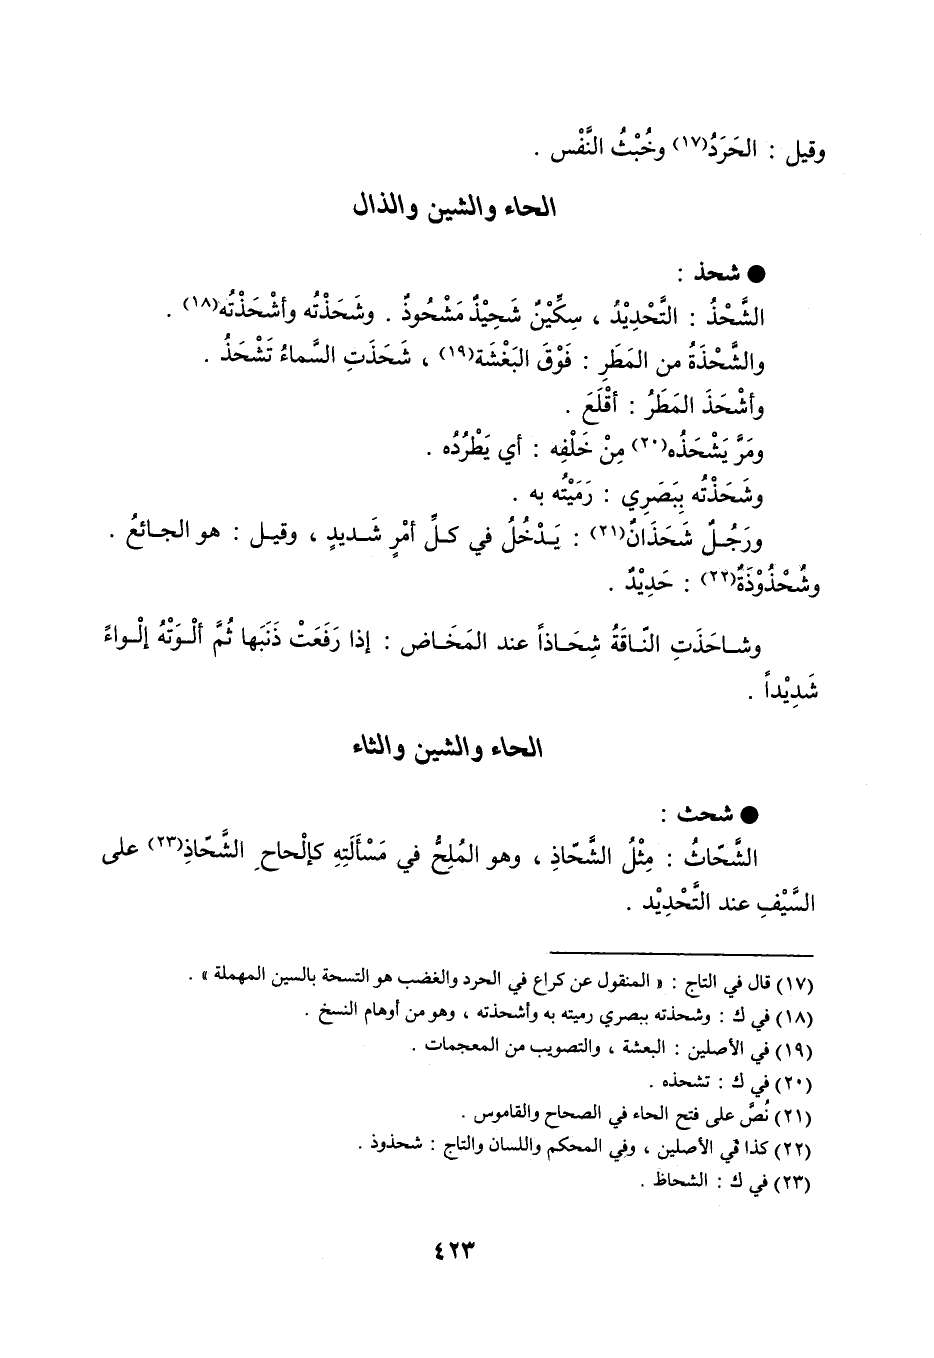 وقيل : الحَرَدُ(١٧) وخُبْثُ النَّفْس .
الحاء والشين والذال
● شحذ :
الشَّحْذُ : التَّحْدِيْدُ ، سِكِّيْنٌ شَحِيْذٌ مَشْحُوذٌ . وشَحَذْتُه وأشْحَذْتُه(١٨) .
والشَّحْذَةُ من المَطَرِ : فَوْقَ البَغْشَة(١٩) ، شَحَذَتِ السَّماءُ تَشْحَذُ .
وأشْحَذَ المَطَرُ : أقْلَعَ .
ومَرَّ يَشْحَذُه(٢٠) مِنْ خَلْفِه : أي يَطْرُدُه .
وشَحَذْتُه بِبَصَرِي : رَمَيْتُه به .
ورَجُلٌ شَحَذَانٌ(٢١) : يَدْخُلُ في كلِّ أمْرٍ شَديدٍ ، وقيل : هو الجائعُ .
وشُحْذُوْذَةٌ(٢٢) : حَدِيْدٌ .
وشاحَذَتِ النّاقَةُ شِحَاذاً عند المَخَاض : إذا رَفَعَتْ ذَنَبَها ثُمَّ ألْوَتْهُ إلْواءً
شَدِيْداً .
الحاء والشين والثاء
● شحث :
الشَّحّاثُ : مِثْلُ الشَّحّاذِ ، وهو المُلِحُّ في مَسْأَلَتِهِ كإلْحاحِ الشَّحّاذِ(٢٣) على
السَّيْفِ عند التَّحْدِيْد .
(١٧) قال في التاج : « المنقول عن كراع في الحرد والغضب هو التسحة بالسين المهملة » .
(١٨) في ك : وشحذته ببصري رميته به وأشحذته ، وهو من أوهام النسخ .
(١٩) في الأصلين : البعشة ، والتصويب من المعجمات .
(٢٠) في ك : تشحذه .
(٢١) نُصَّ على فتح الحاء في الصحاح والقاموس .
(٢٢) كذا في الأصلين ، وفي المحكم واللسان والتاج : شحذوذ .
(٢٣) في ك : الشحاظ .
٤٢٣